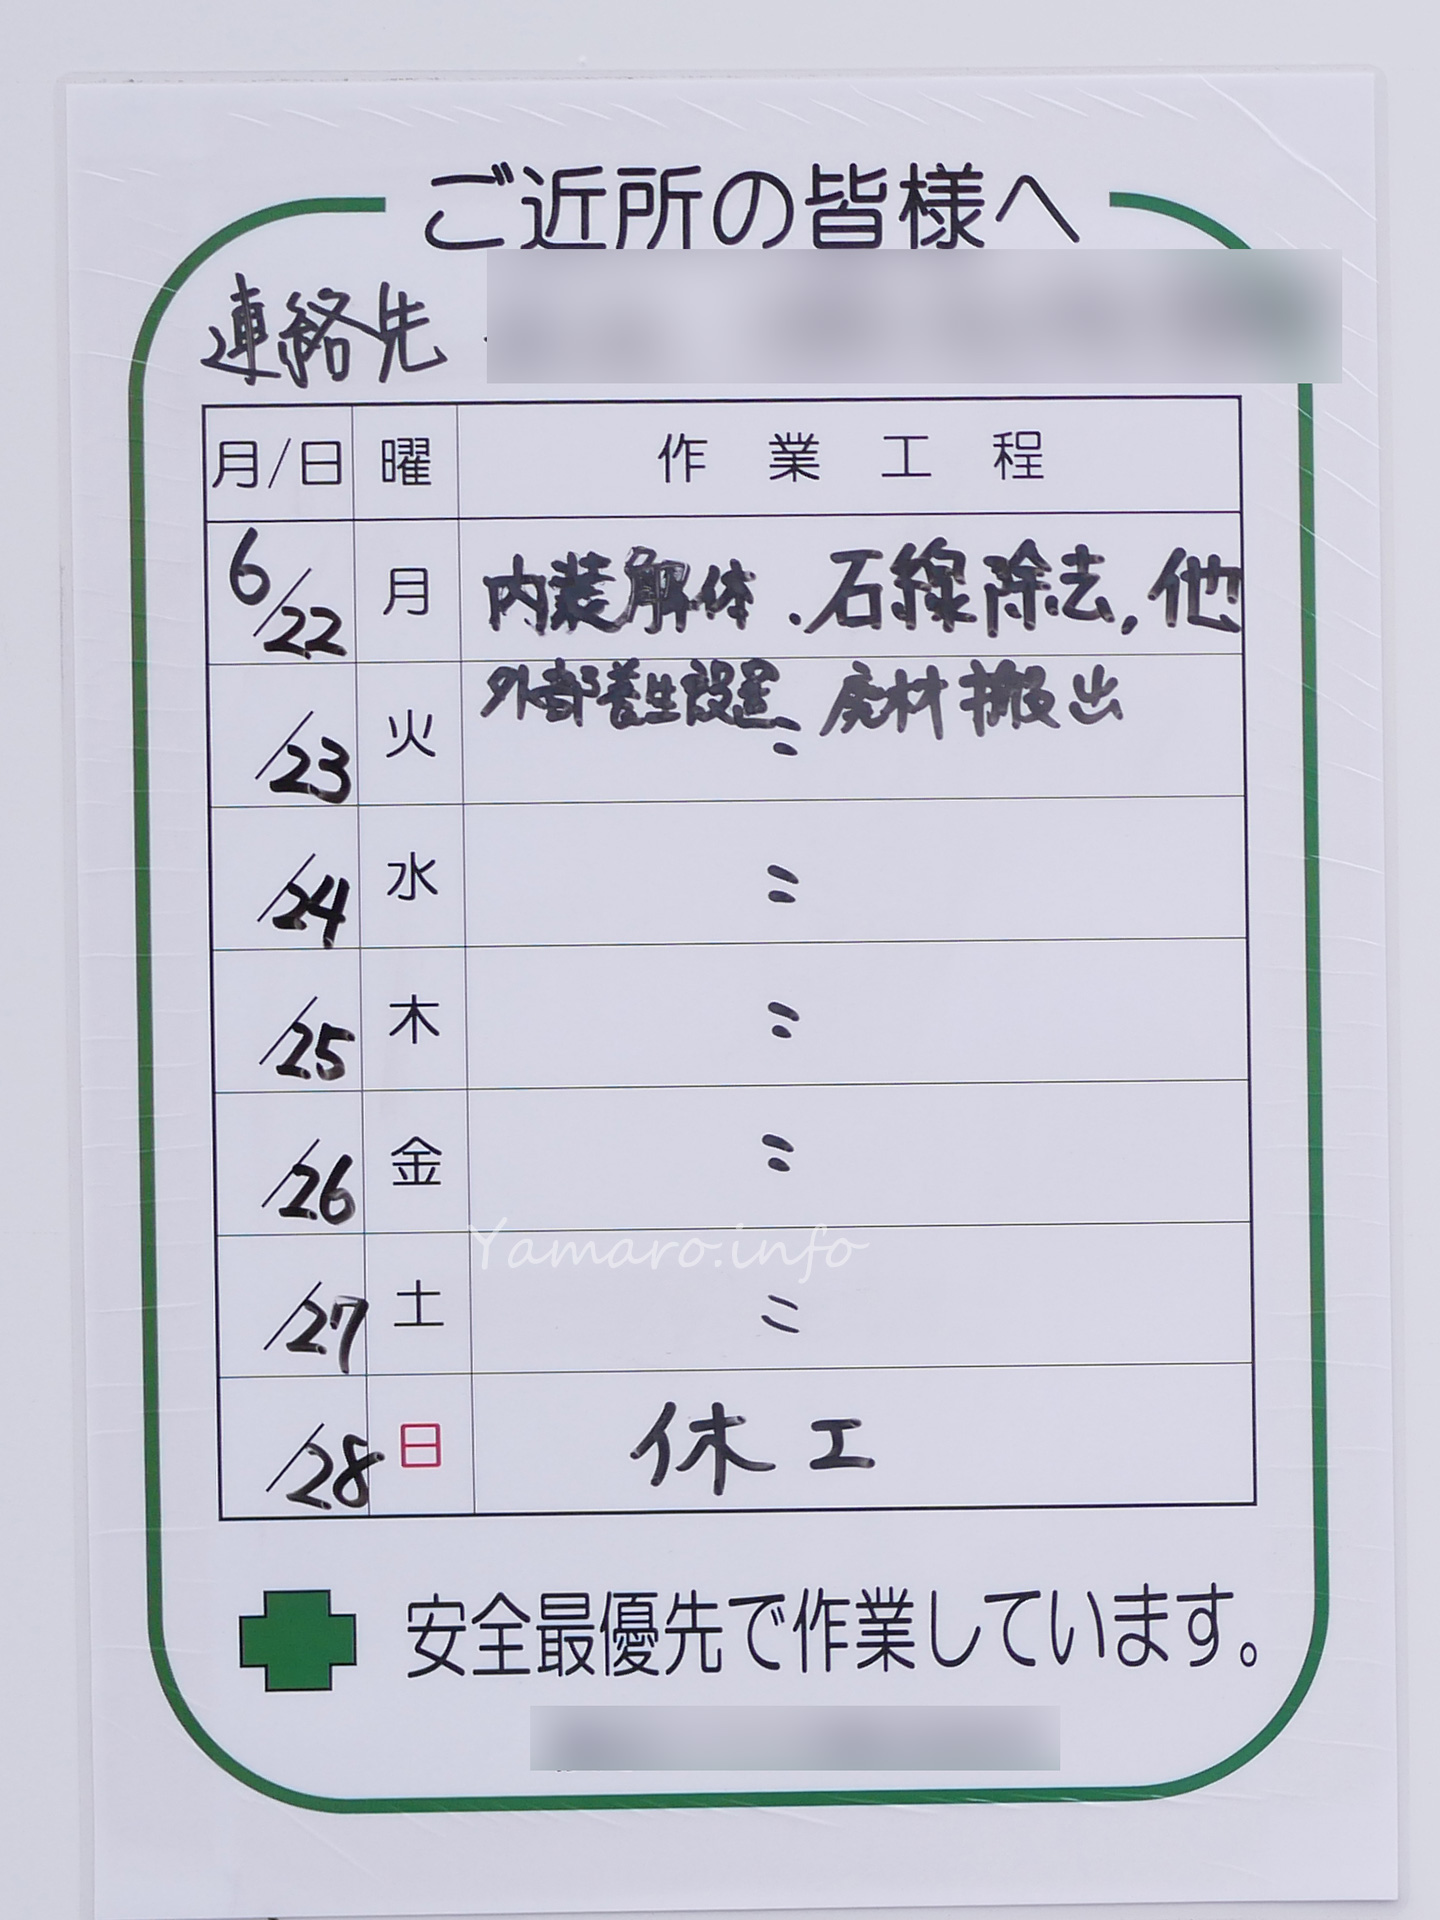 ご近所の皆様へ
連絡先
月/日 曜 作業工程
6/22 月 内装解体、石綿除去,他
/23 火 外部養生設置、廃材搬出
〃
/24 水 〃
/25 木 〃
/26 金 〃
Yamaro.info
/27 土 〃
/28 日 休工
安全最優先で作業しています。